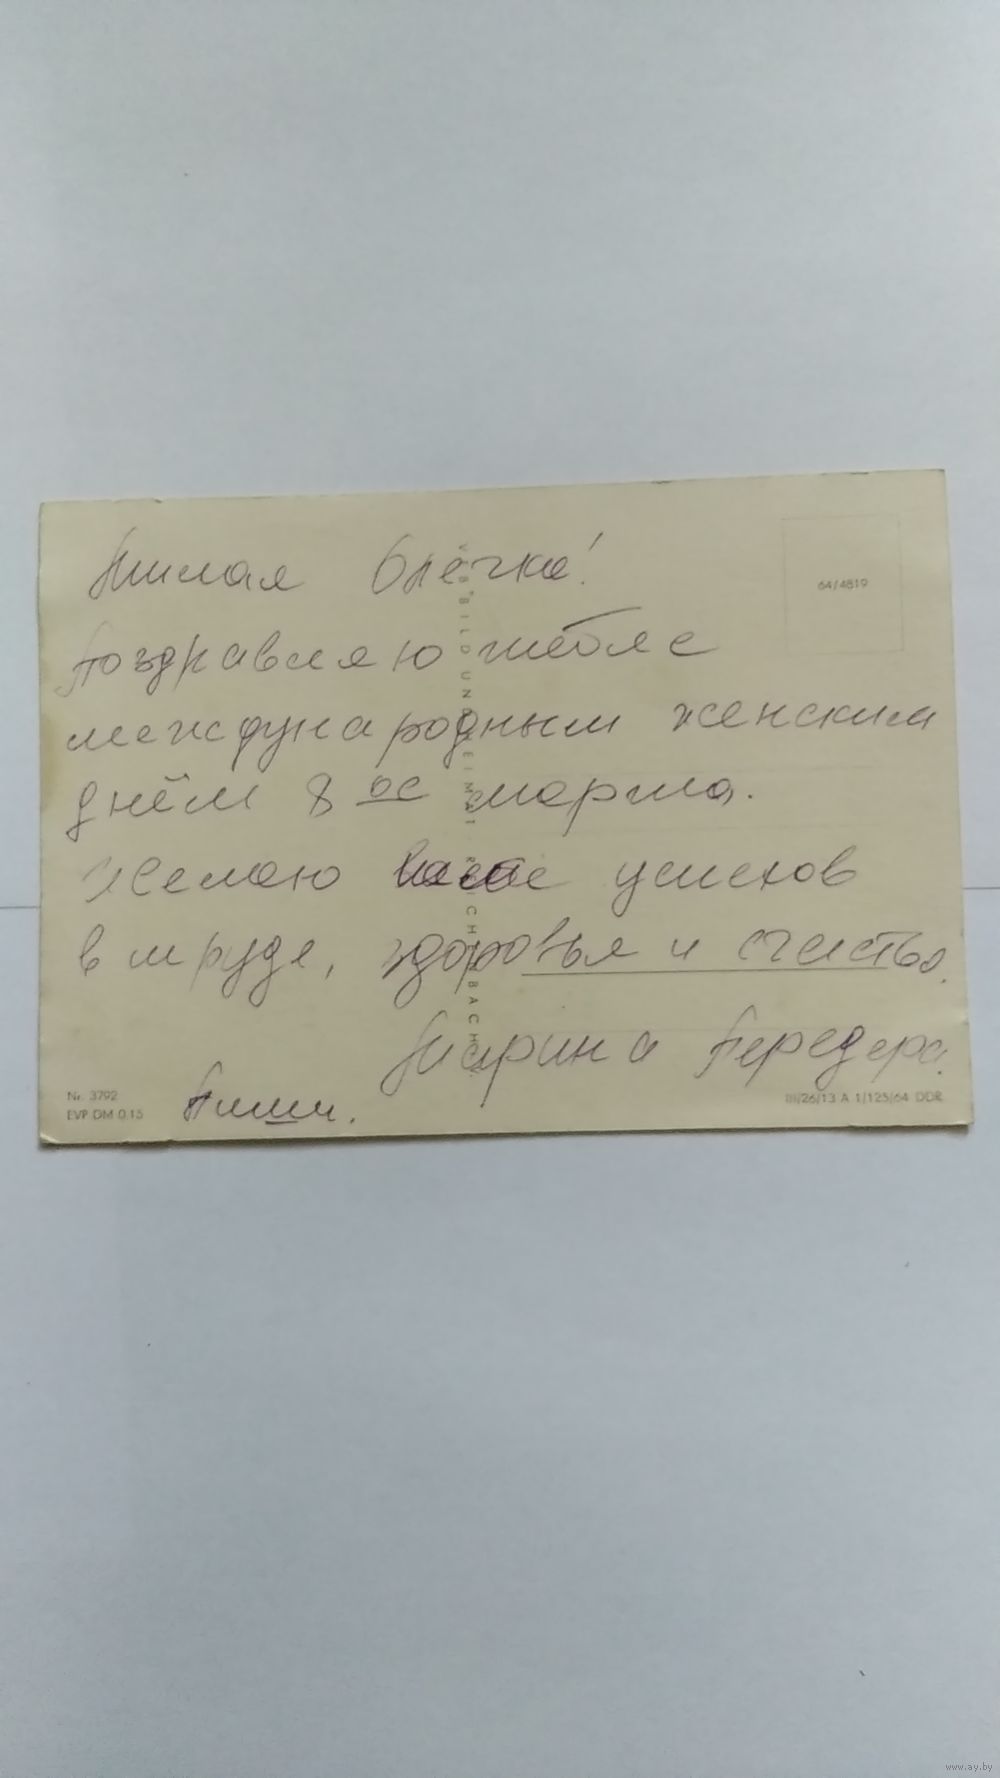 Милая Олечка!
64/4819
Поздравляю тебя с
международным женским
днём 8 ое марта.
Желаю успехов
в труде, здоровья и счастья.
Марина Передера.
Пиши.
Nr. 3792
EVP DM 0,15
III/26/13 A 1/125/64 DDR
VEB BILD UND HEIMAT REICHENBACH
www.ay.by